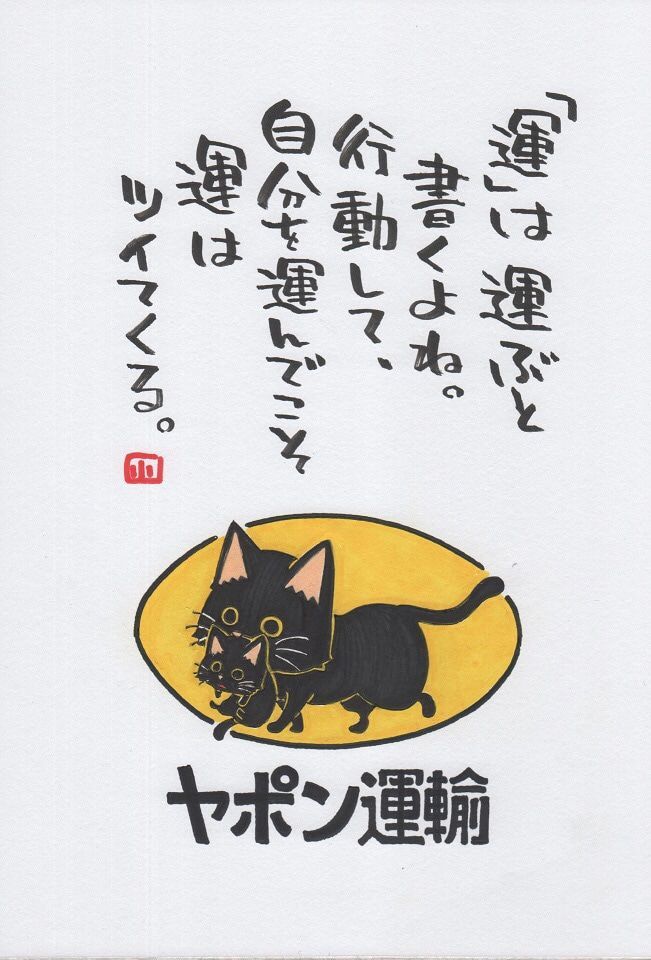 「運」は運ぶと
書くよね。
行動して、
自分を運んでこそ
運は
ツイてくる。
ヤポン運輸